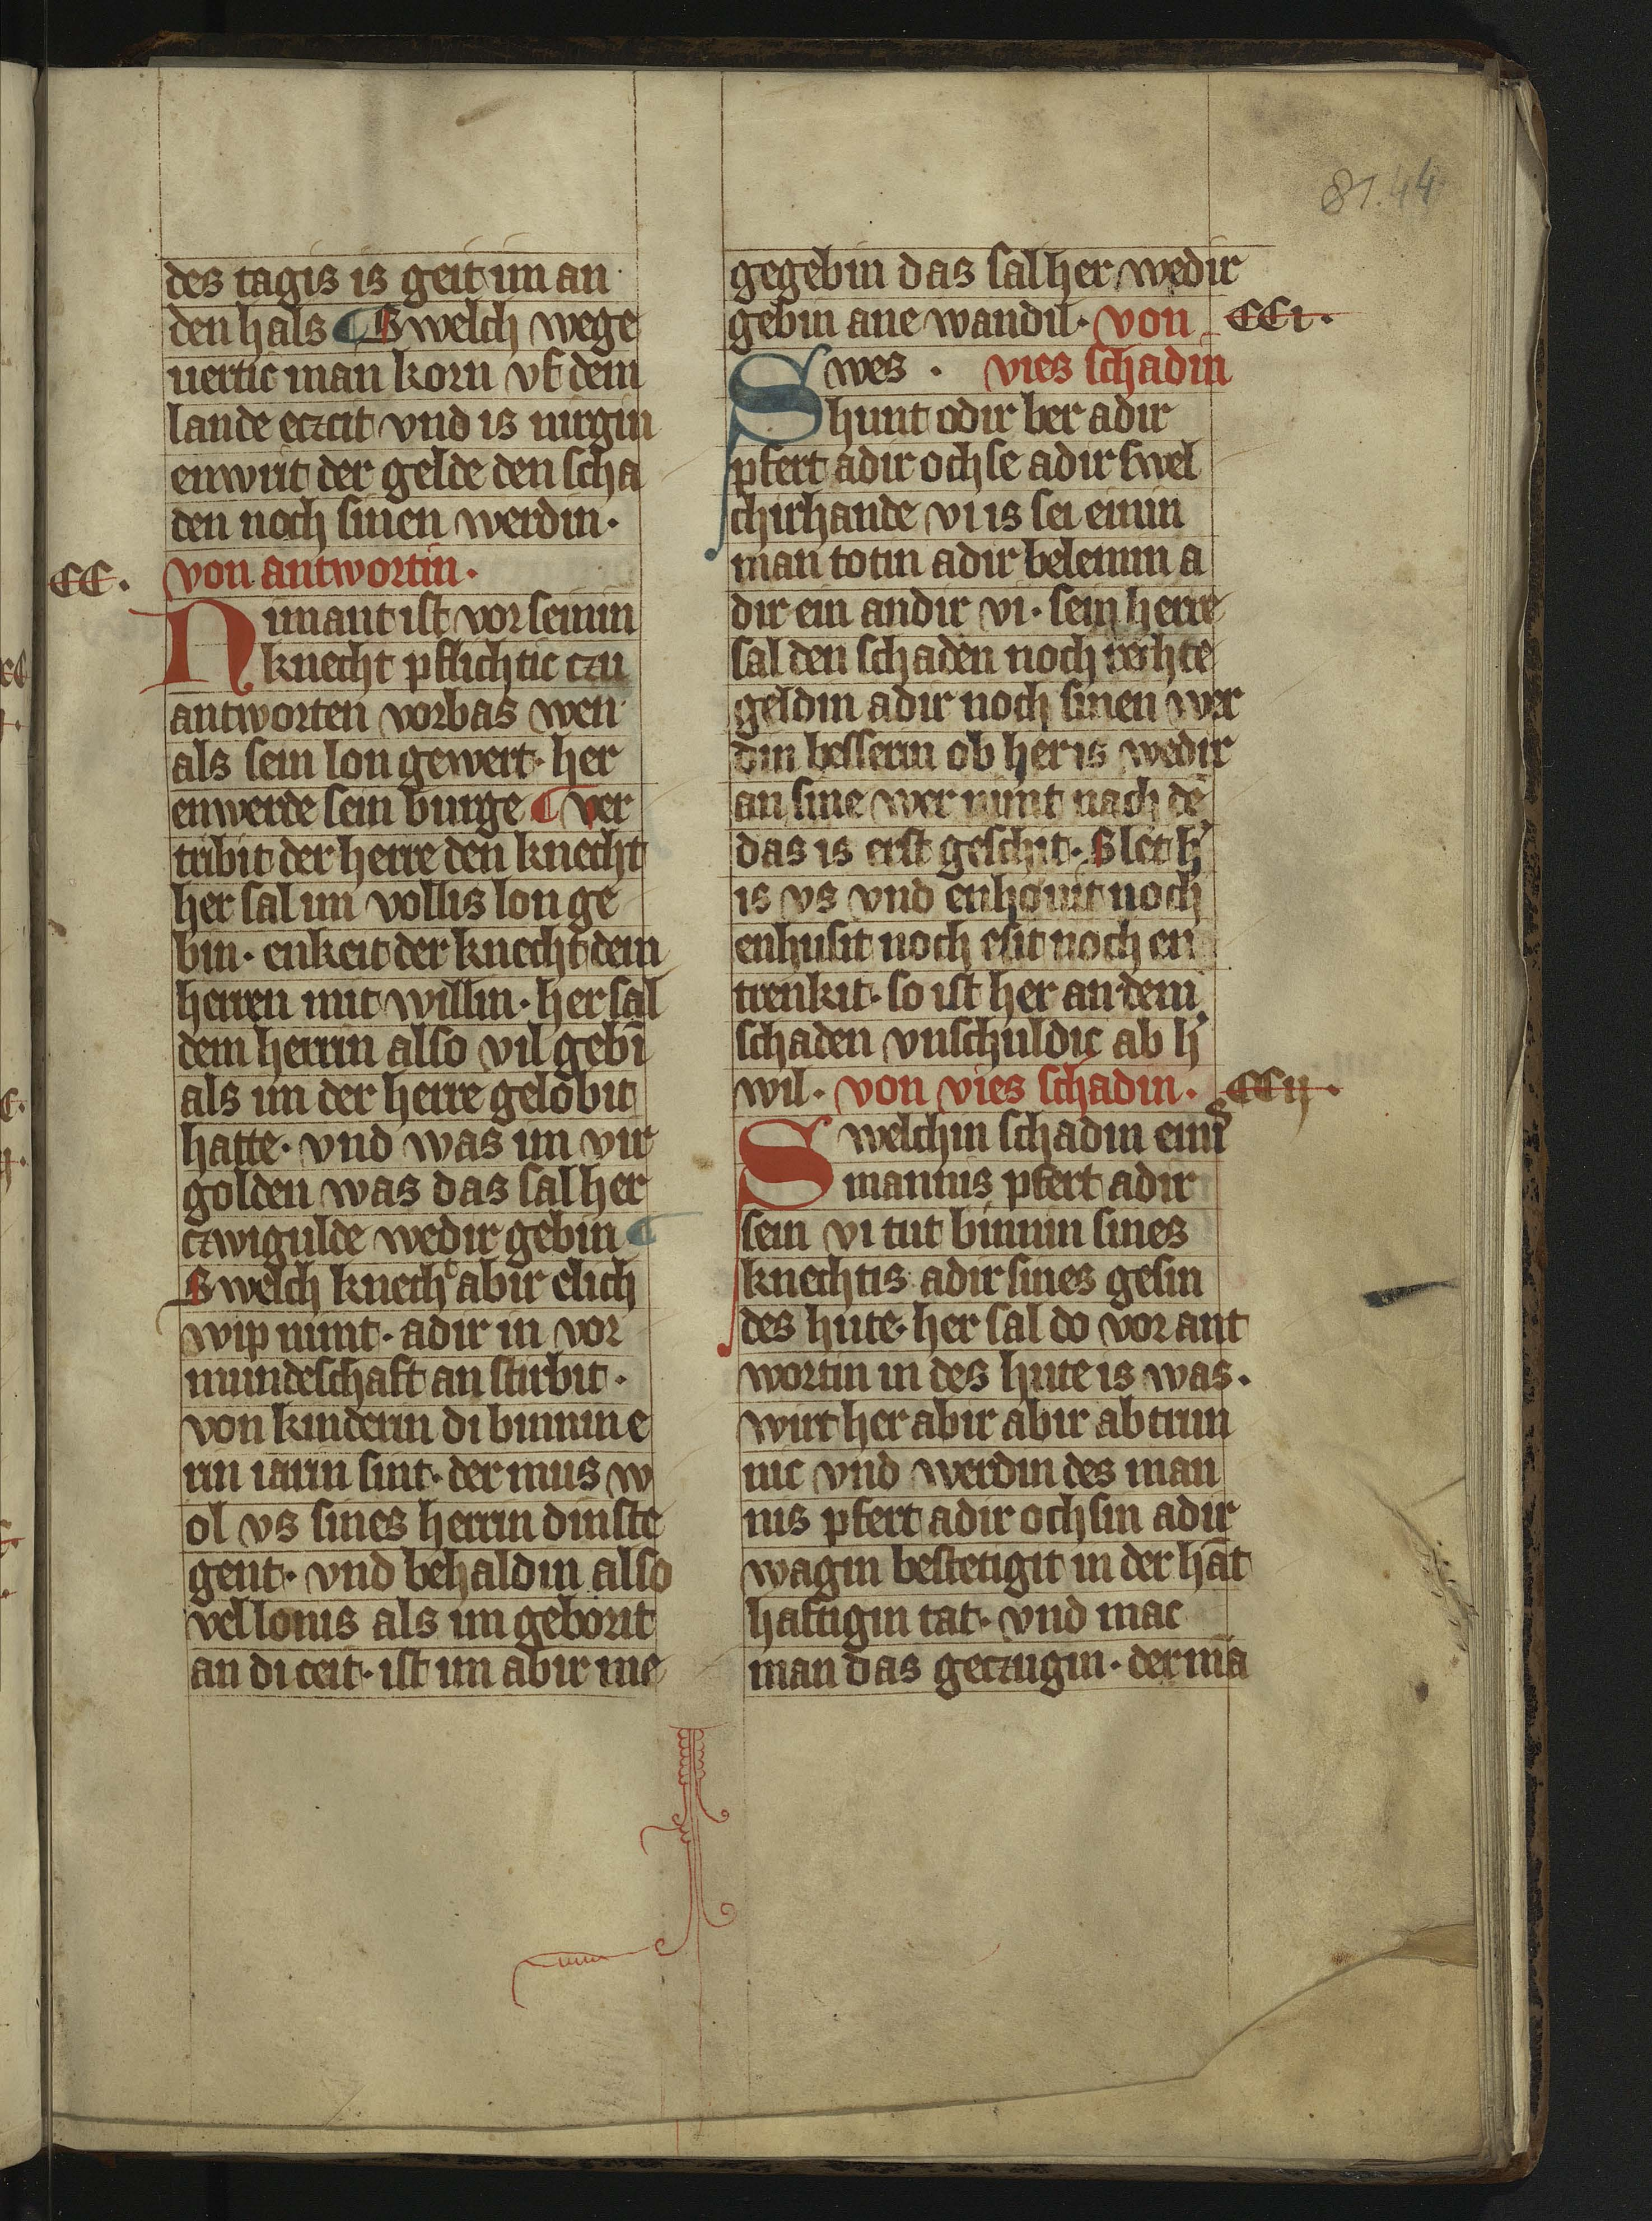 81.44
des tagis is geit im an
den hals ¶ Swelch wege
uertic man korn vf dem
lande etzcit vnd is nirgin
enwirt der gelde den scha
den noch sinen werdin.
CC. von antwortin.
Nimant ist vor seinin
knecht pflichtic czu
antworten vorbas wen
als sein lon gewert. her
enwerde sein burge ¶ ver
tribit der herre den knecht
her sal im vollis lon ge
bin. enkeit der knecht dem
herren mit willin. her sal
dem herrin also vil gebī
als im der herre gelobit
hatte. vnd was im vir
golden was das sal her
czwigulde wedir gebin ¶
Swelch knecht abir elich
wip nimt. adir in vor
mundeschaft an stirbit.
von kinderin di binnin e
rin iarin sint. der mus w
ol vs sines herrin dinste
gent. vnd behaldin also
vel lonis als im geborit
an di ceit. ist im abir me
gegebin das sal her wedir
gebin ane wandil. von CCi.
Swes . vies schadin
hunt odir ber adir
pfert adir ochse adir swel
chirhande vi is sei einin
man totin adir belemin a
dir ein andir vi. sein herre
sal den schaden noch rechte
geldin adir noch sinen wer
din bessern ob her is wedir
an sine wer nimt nach dē
das is erst geschit. Slet h̓
is vs vnd enhouit noch
enhusit noch esit noch en
trenkit. so ist her an dem
schaden vnschuldic ab h̓
wil. von vies schadin. CCij.
Swelchin schadin einis
mannis pfert adir
sein vi tut binnin sines
knechtis adir sines gesin
des hute. her sal do vor ant
wortin in des hute is was.
wirt her abir abir abtrun
nic vnd werdin des man
nis pfert adir ochsin adir
wagin bestetigit in der hāt
haftigin tat. vnd mac
man das geczugin. der mā